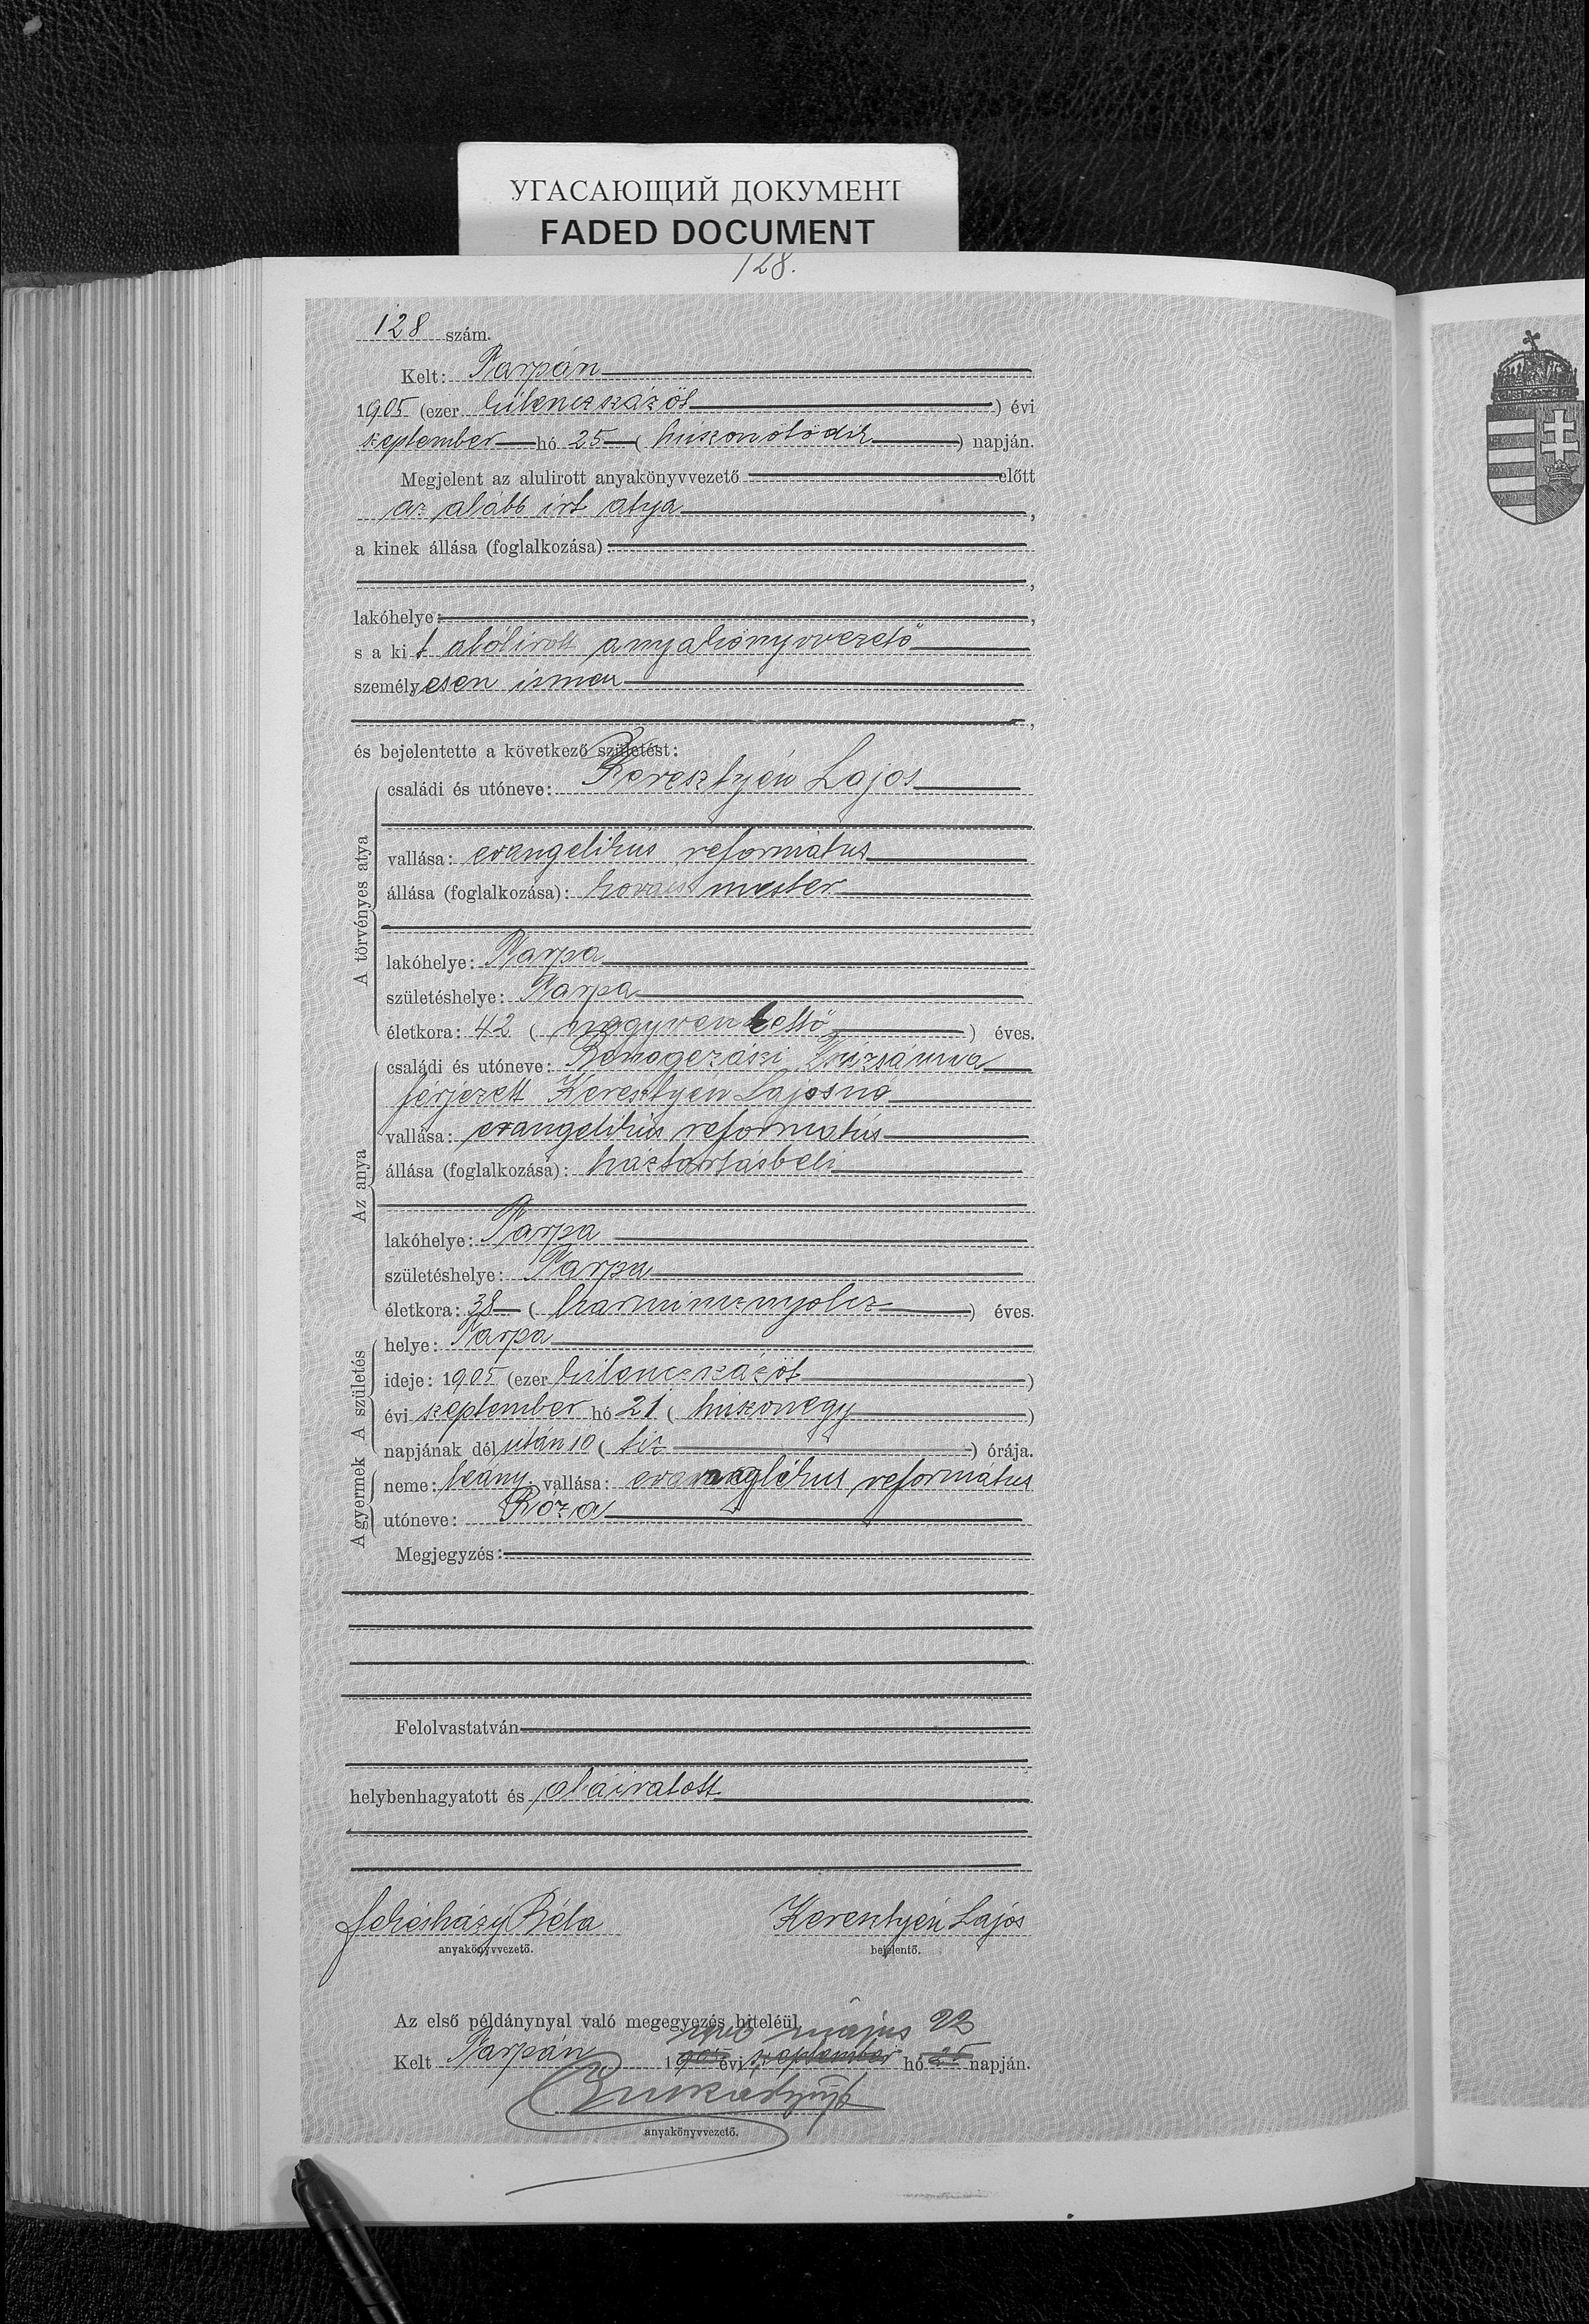 УГАСАЮЩИЙ ДОКУМЕНТ
FADED DOCUMENT
128.
128 szám.
Kelt: Tarpán
1905 (ezer kilenczszázöt) évi
szeptember hó 25 (huszonötödik) napján.
Megjelent az alulirott anyakönyvvezető előtt
az alább irt atya,
a kinek állása (foglalkozása):
lakóhelye:
s a kit alólirott anyakönyvvezető
személyesen ismer
és bejelentette a következő születést:
A törvényes atya
családi és utóneve: Keresztyén Lajos
vallása: evangelikus református
állása (foglalkozása): kovács mester
lakóhelye: Tarpa
születéshelye: Tarpa
életkora: 42 (negyvenkettő) éves.
Az anya
családi és utóneve: Zsuzsánna
férjezett Keresztyén Lajosné
vallása: evangelikus református
állása (foglalkozása): háztartásbeli
lakóhelye: Tarpa
születéshelye: Tarpa
életkora: 38 (harmincznyolcz) éves.
A születés
helye: Tarpa
ideje: 1905 (ezer kilenczszázöt)
évi szeptember hó 21 (huszonegy)
napjának délután 10 (tiz) órája.
A gyermek
neme: leány. vallása: evangelikus református
utóneve: Róza
Megjegyzés:
Felolvastatván
helybenhagyatott és aláiratott
Béla Keresztyén Lajos
anyakönyvvezető. bejelentő.
Az első példánynyal való megegyezés hiteléül
május 22
Kelt Tarpán 1905 évi szeptember hó 25 napján.
anyakönyvvezető.